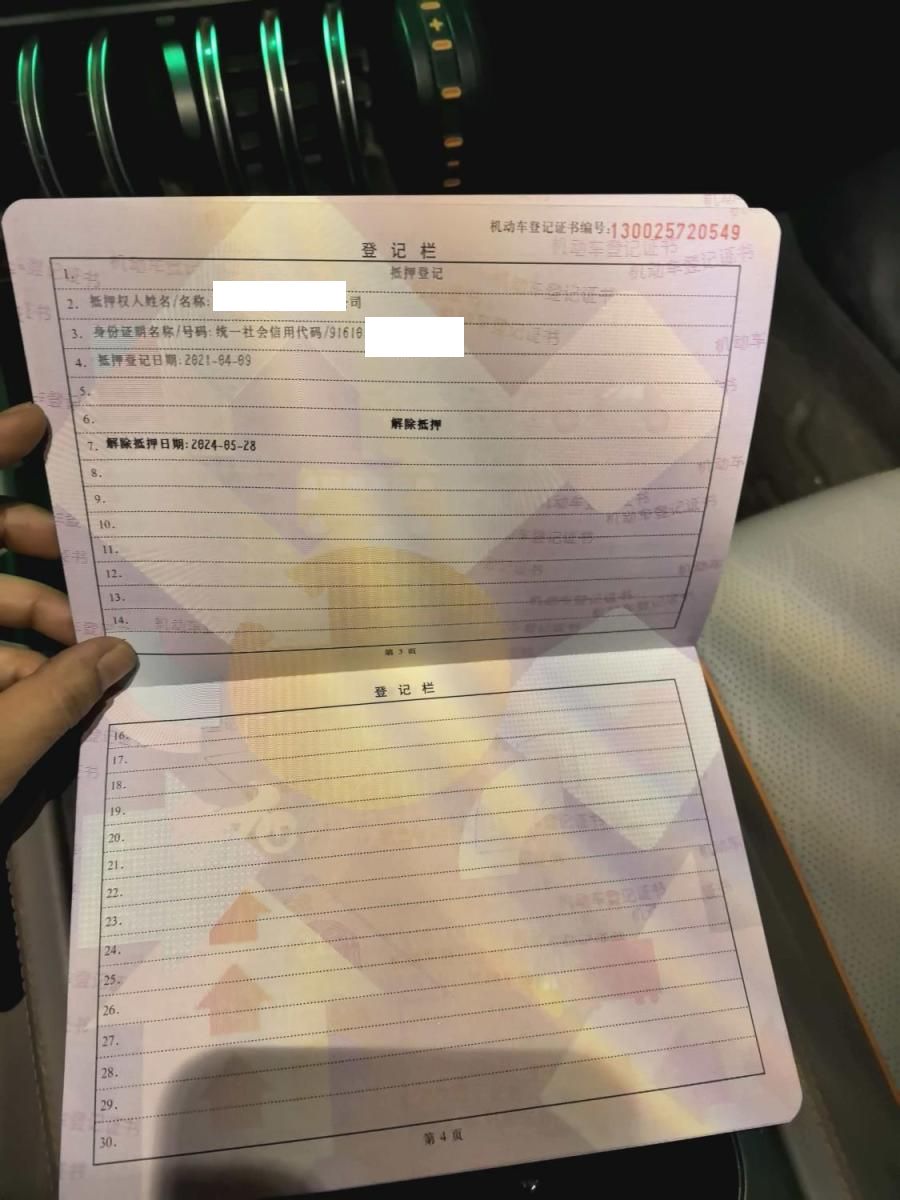 机动车登记证书编号:130025720549
登记栏
1. 抵押登记
2. 抵押权人姓名/名称: 司
3. 身份证明名称/号码:统一社会信用代码/91610
4. 抵押登记日期:2021-04-09
5.
6. 解除抵押
7. 解除抵押日期:2024-05-28
8.
9.
10.
11.
12.
13.
14.
第 3 页
登记栏
16.
17.
18.
19.
20.
21.
22.
23.
24.
25.
26.
27.
28.
29.
30.
第 4 页